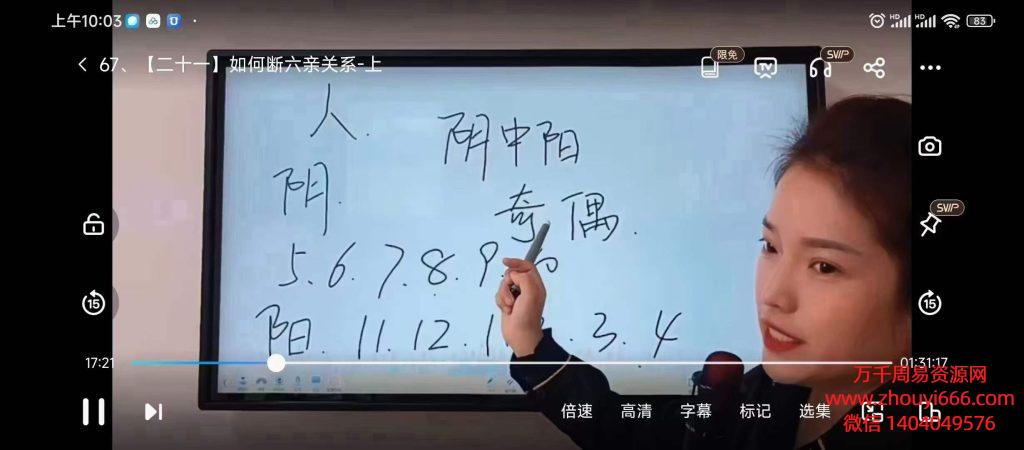 上午10:03
83
67、【二十一】如何断六亲关系-上
限免
SVIP
人.
阴中阳
阴.
奇偶.
SVIP
5.6.7.8.9.
15
15
阳.11.12.1
.3.4
17:21
01:31:17
万千周易资源网
www.zhouyi666.com
倍速
高清
字幕
标记
选集
微信 1404049576